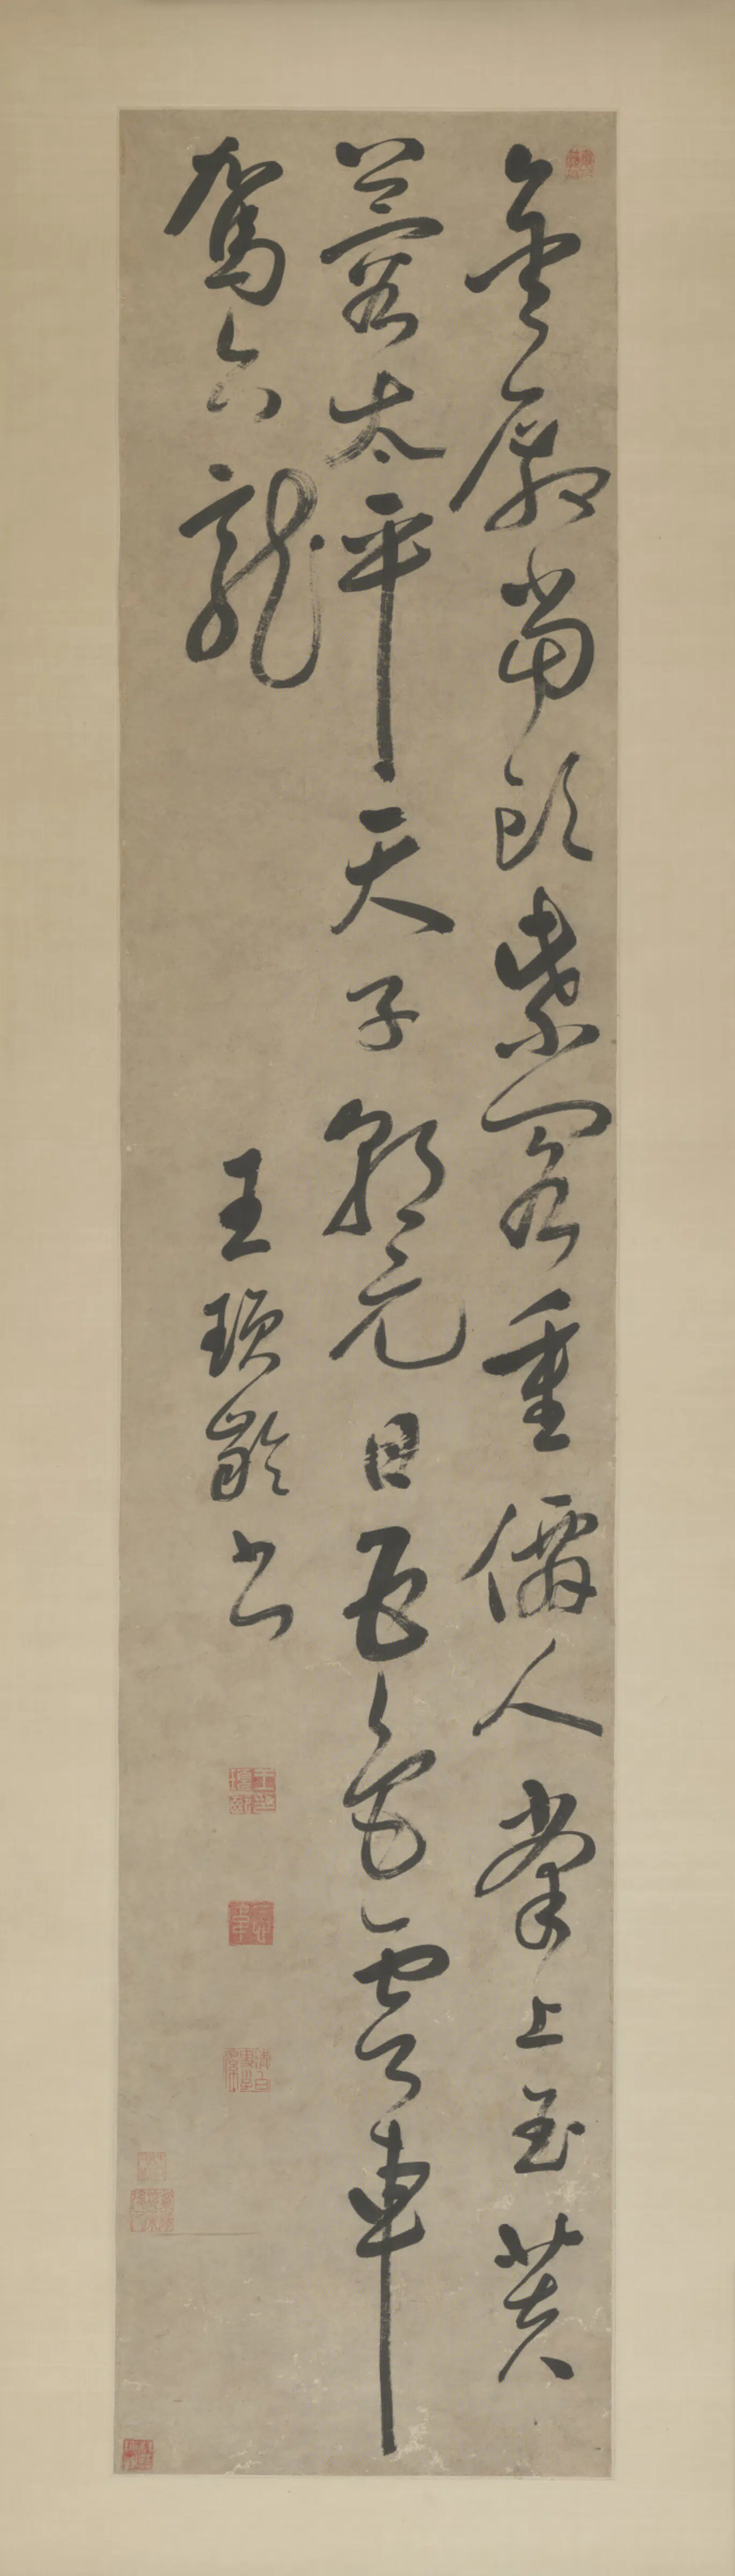 金殿當頭紫閣重僊人掌上玉芙
蓉太平天子朝元日五色雲車
駕六龍
王頊齡書